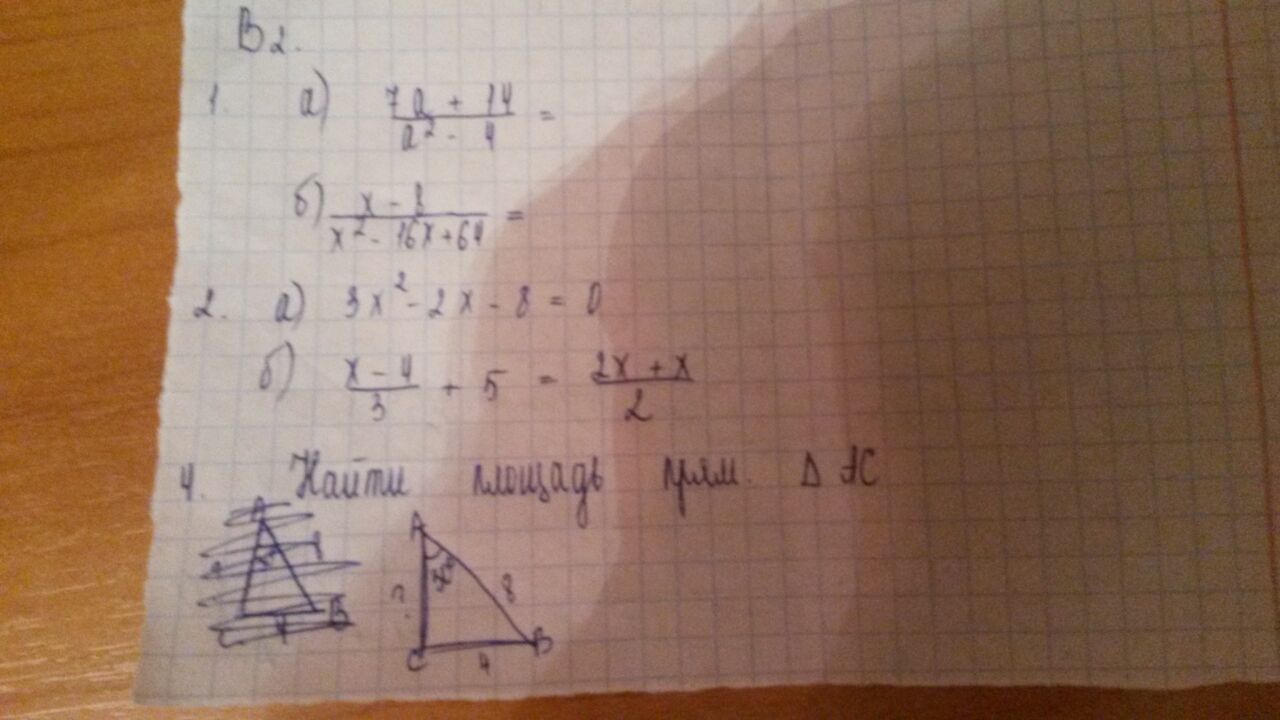 В 2.
1. а) (7a + 14)/(a² - 4) =
б) (x - 8)/(x² - 16x + 64) =
2. а) 3x² - 2x - 8 = 0
б) (x - 4)/3 + 5 = (2x + x)/2
4. Найти площадь прям. Δ AC
A
30°
? 8
C 4 B